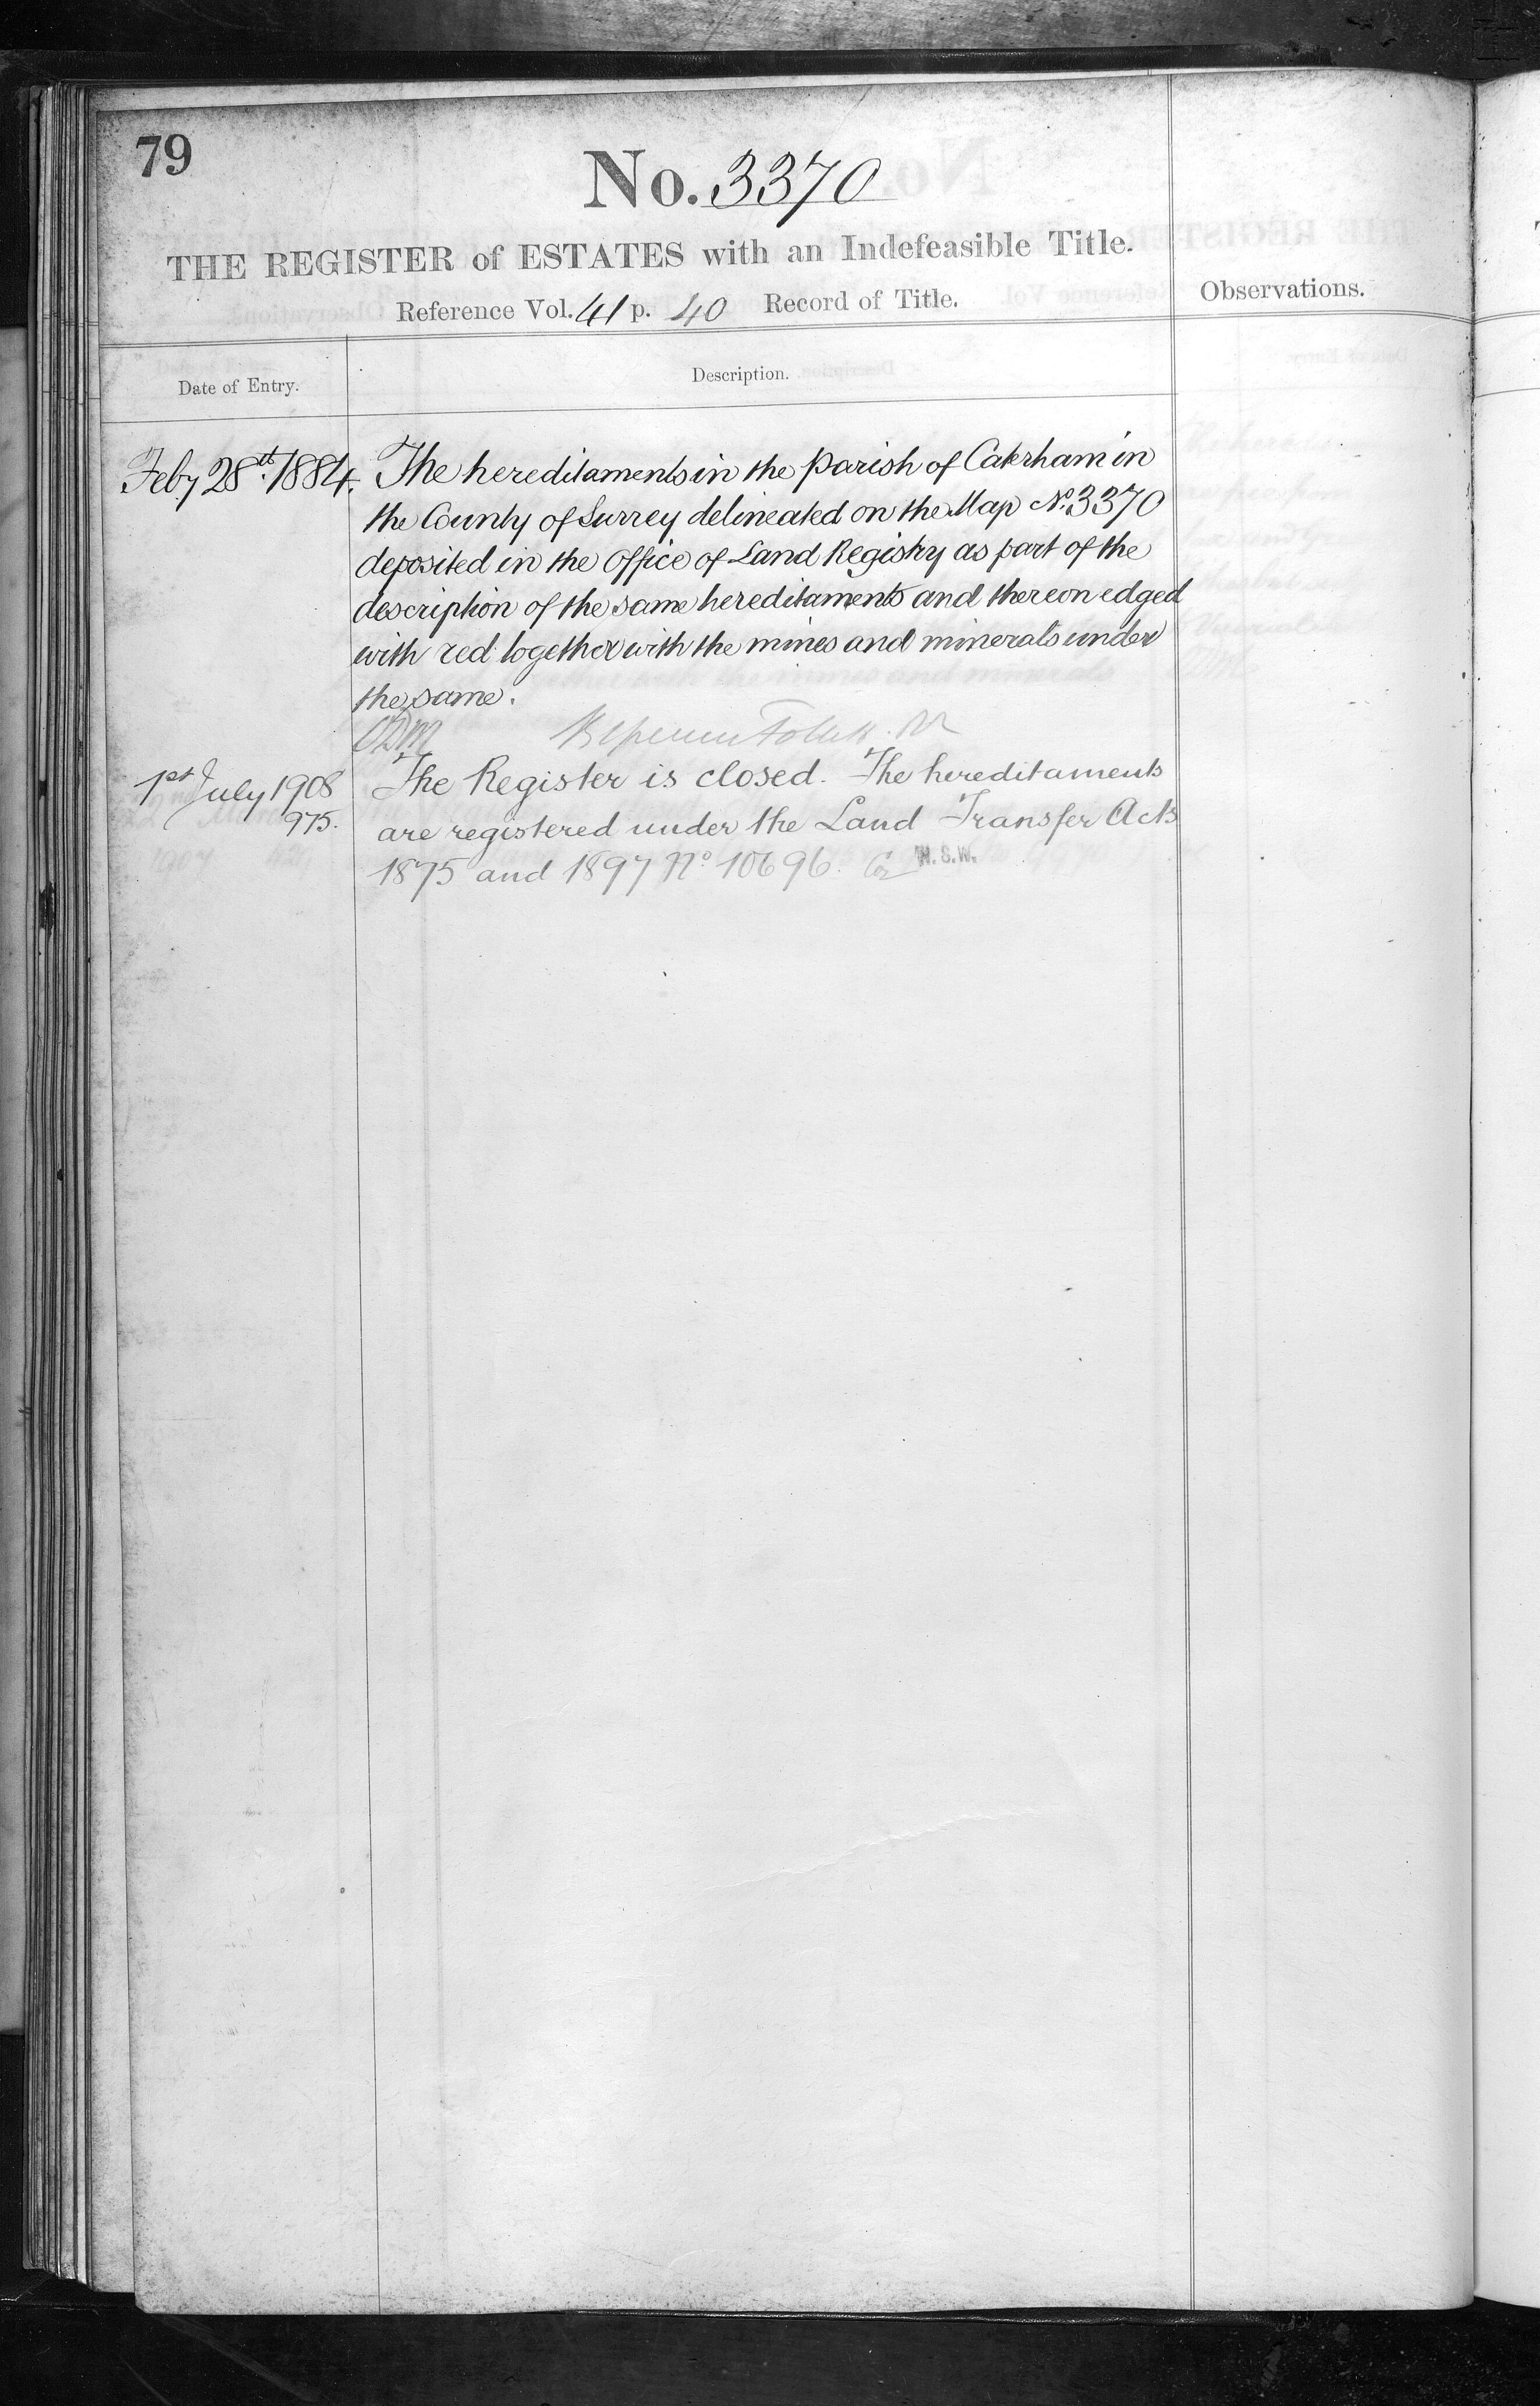 79
No. 3370
THE REGISTER of ESTATES with an Indefeasible Title.
Reference Vol. 41 p. 40 Record of Title.
Observations.
Date of Entry.
Description.
Feby 28th. 1884. The hereditaments in the Parish of Caterham in
the County of Surrey delineated on the Map No. 3370
deposited in the Office of Land Registry as part of the
description of the same hereditaments and thereon edged
with red together with the mines and minerals under
the same.
1st July 1908 The Register is closed. The hereditaments
975. are registered under the Land Transfer Acts
1875 and 1897 No 10696. H.S.W.